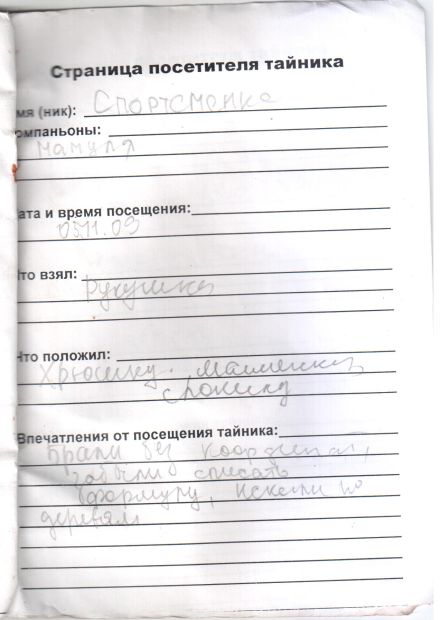 Страница посетителя тайника
мя (ник): Спортсменка
омпаньоны:
Мамуля
ата и время посещения:
05.11.09
то взял:
то положил:
Хрюшку.
Впечатления от посещения тайника:
Брали без координат,
забыли списать
формулу, искали по
деревям